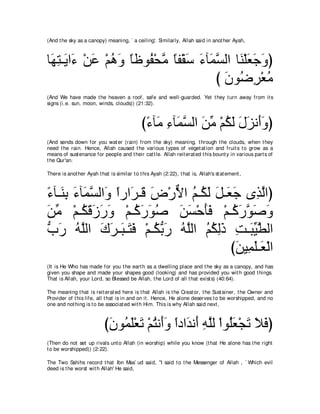 (And the sky as a canopy) meaning, ` a ceiling'. Similarly, Allah said in another Ayah,
(وَجَعَلْنَا السَّمَآءَ سَقْفاً مَّحْفُوظاً وَهُمْ عَنْ ءَايَـتِهَا
مُعْرِضُونَ )
(And We have made the heaven a roof, safe and well-guarded. Yet they turn away from its
signs (i.e. sun, moon, winds, clouds)) (21:32).
(وَأَنزَلَ لَكُم مِّنَ السَّمَآءِ مَآءً)
(And sends down for you water (rain) from the sky) meaning, through the clouds, when they
need the rain. Hence, Allah caused the various types of vegetation and fruits to grow as a
means of sustenance for people and their cattle. Allah reiterated this bounty in various parts of
the Qur'an.
There is another Ayah that is similar to this Ayah (2:22), that is, Allah's statement,
(الَّذِى جَعَـلَ لَكُـمُ الاٌّرْضَ قَـرَاراً وَالسَّمَآءَ بِنَـآءً
وَصَوَّرَكُـمْ فَأَحْسَنَ صُوَرَكُـمْ وَرَزَقَكُـمْ مِّنَ
الطَّيِّبَـتِ ذَلِكُمُ اللَّهُ رَبُّكُـمْ فَتَـبَـرَكَ اللَّهُ رَبُّ
الْعَـلَمِينَ)
(It is He Who has made for you the earth as a dwelling place and the sky as a canopy, and has
given you shape and made your shapes good (looking) and has provided you with good things.
That is Allah, your Lord, so Blessed be Allah, the Lord of all that exists) (40:64).
The meaning that is reiterated here is that Allah is the Creator, the Sustainer, the Owner and
Provider of this life, all that is in and on it. Hence, He alone deserves to be worshipped, and no
one and nothing is to be associated with Him. This is why Allah said next,
(فَلاَ تَجْعَلُواْ لِلَّهِ أَندَاداً وَأَنتُمْ تَعْلَمُونَ)
(Then do not set up rivals unto Allah (in worship) while you know (that He alone has the right
to be worshipped)) (2:22).
The Two Sahihs record that Ibn Mas` ud said, "I said to the Messenger of Allah , ` Which evil
deed is the worst with Allah' He said,